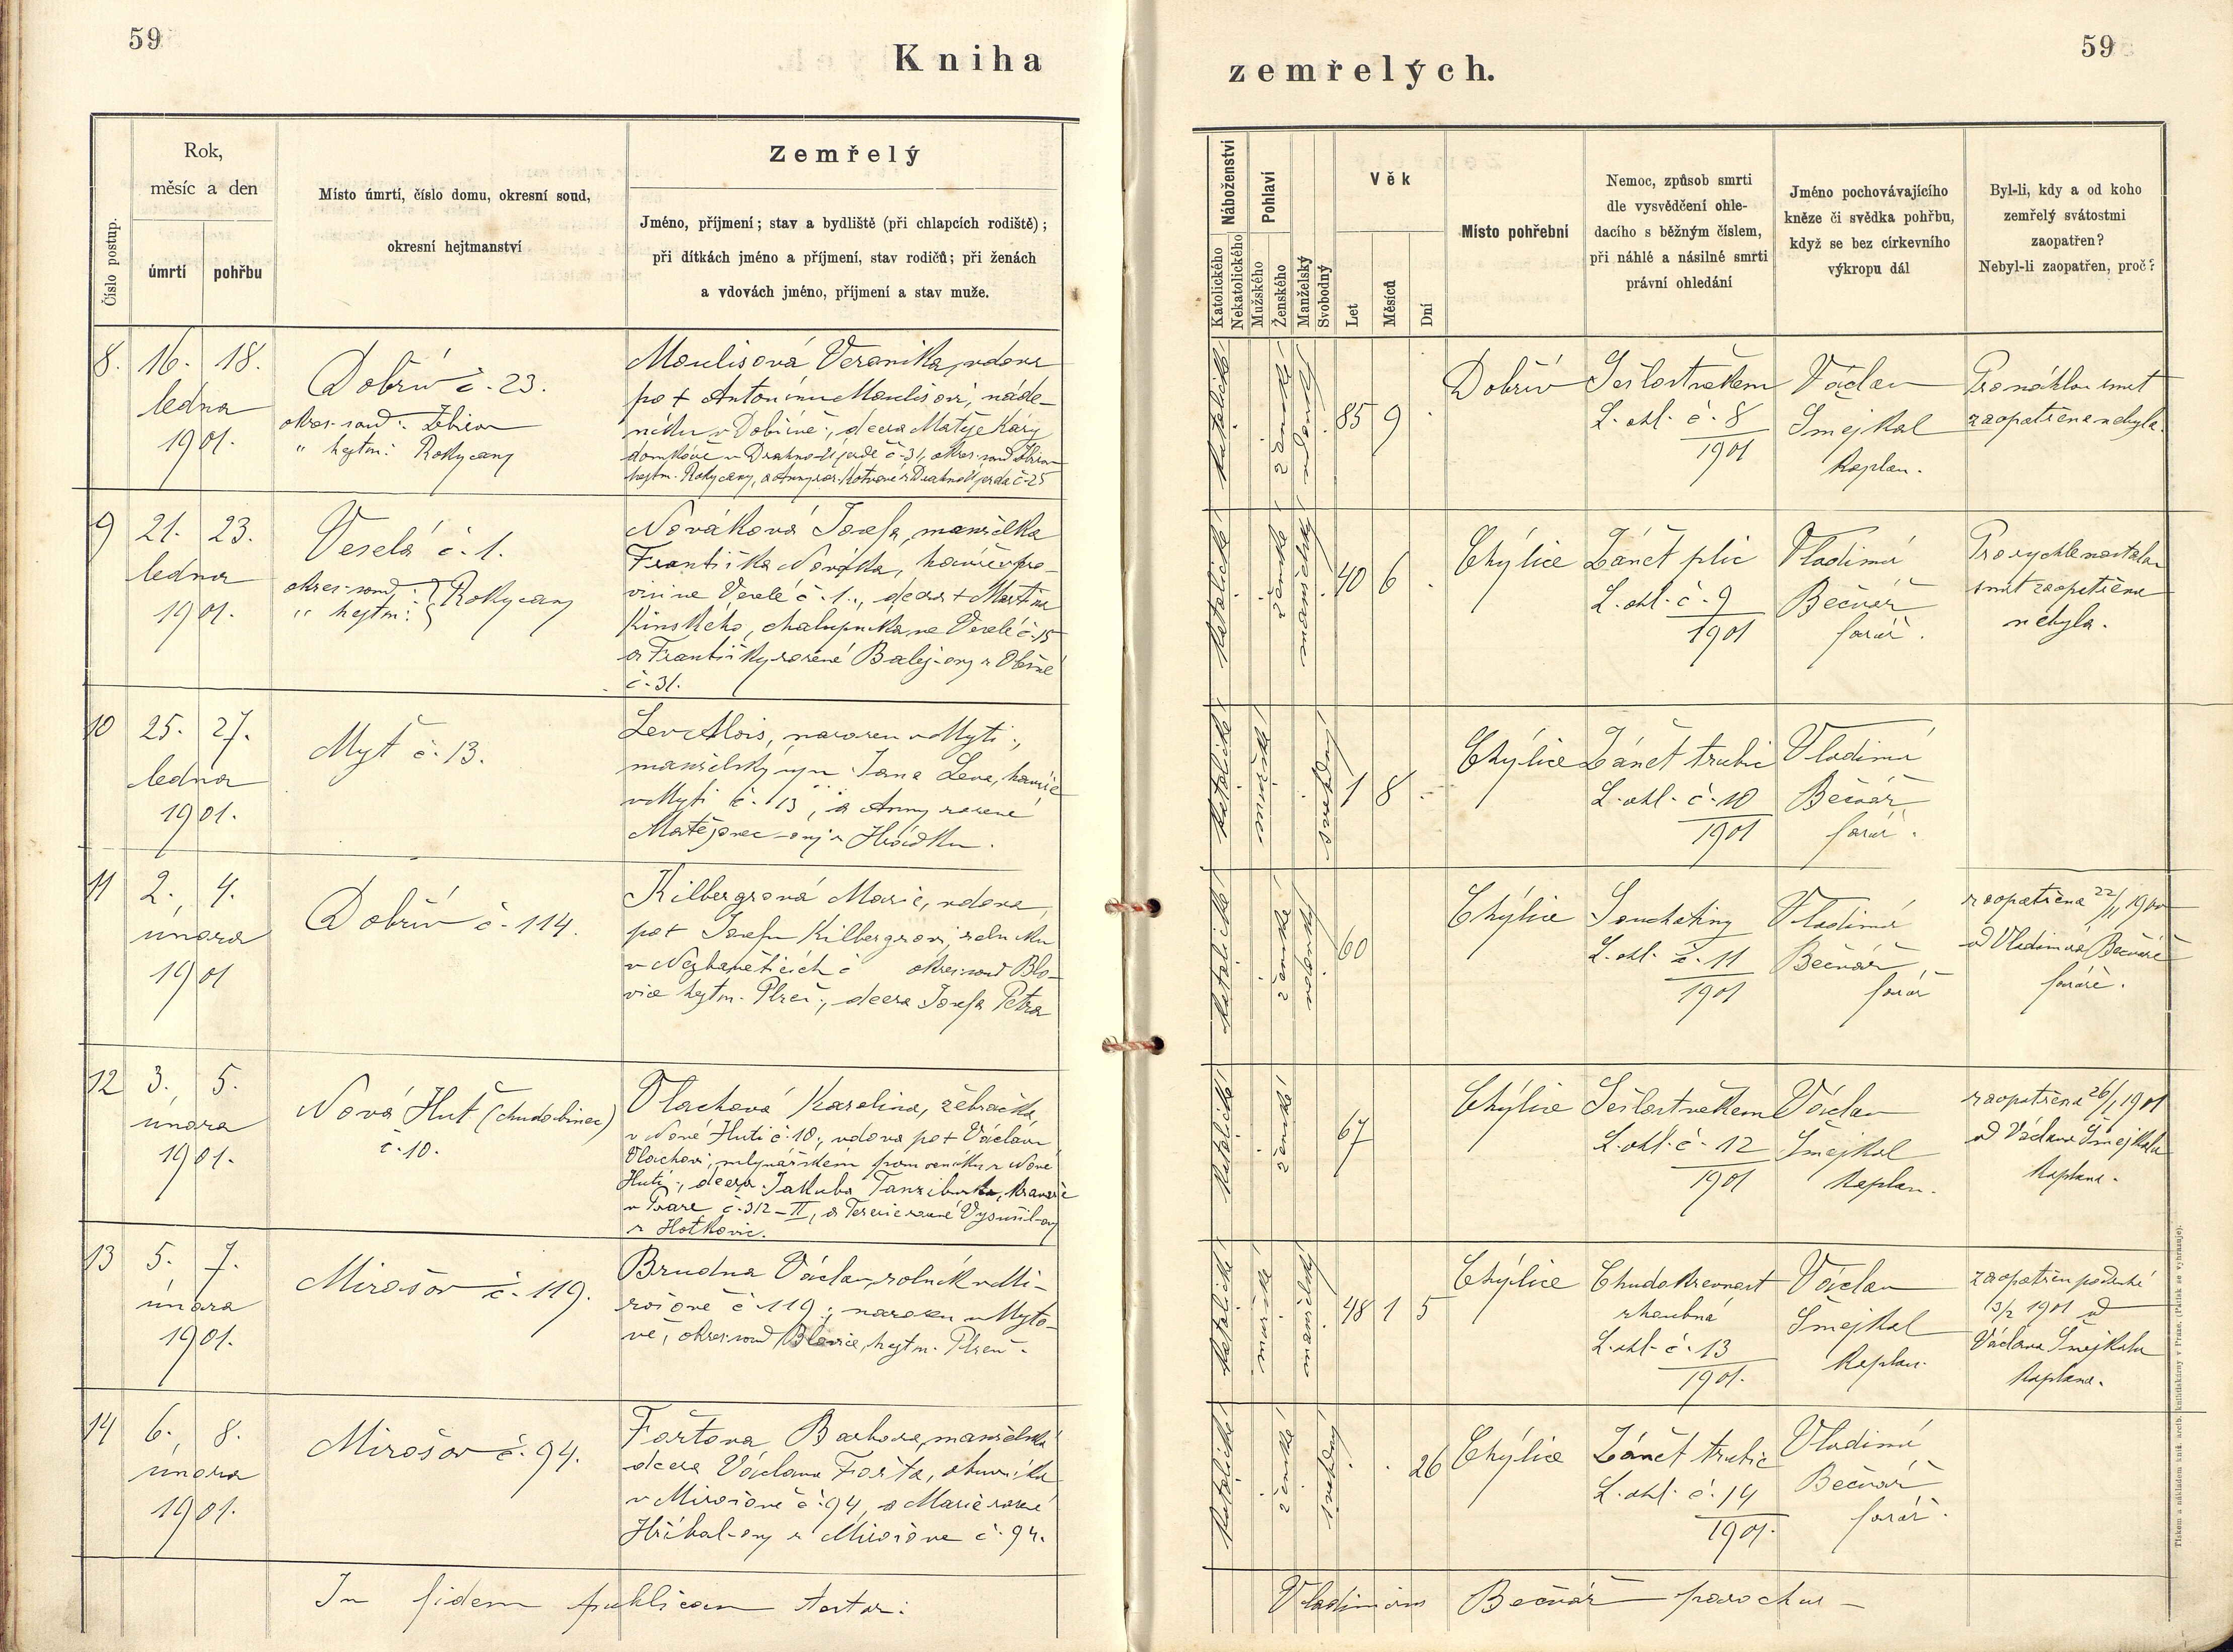 59
Kniha
zemřelých.
59
Číslo postup.
Rok,
měsíc a den
úmrtí
pohřbu
Místo úmrtí, číslo domu, okresní soud,
okresní hejtmanství
Zemřelý
Jméno, příjmení; stav a bydliště (při chlapcích rodiště);
při dítkách jméno a příjmení, stav rodičů; při ženách
a vdovách jméno, příjmení a stav muže.
Náboženství
Katolického
Nekatolického
Pohlaví
Mužského
Ženského
Manželský
Svobodný
Věk
Let
Měsíců
Dní
Místo pohřební
Nemoc, způsob smrti
dle vysvědčení ohle-
dacího s běžným číslem,
při náhlé a násilné smrti
právní ohledání
Jméno pochovávajícího
kněze či svědka pohřbu,
když se bez církevního
výkropu dál
Byl-li, kdy a od koho
zemřelý svátostmi
zaopatřen?
Nebyl-li zaopatřen, proč?
8. 16. 18.
ledna
1901.
Dobřív č. 23.
okres. soud: Zbirov
" hejtm: Rokycany
Moulisová Veronika, vdova
po + Antonínu Moulisovi, náde-
níku v Dobřívě, dcera Matěje Káry
domkáře v Drahno-Újezdě č. 31, okres. soud Zbirov
hejtm. Rokycany, a Anny roz. z Drahno Újezda č. 25
katolické
ženské
vdovský
85 9 .
Dobřív
Sešlost věkem
L. ohl. č. 8
1901
Václav
Šmejkal
kaplan.
Pro náhlou smrt
zaopatřena nebyla.
9 21. 23.
ledna
1901.
Veselá č. 1.
okres. soud:
" hejtm: } Rokycany
Nováková Josefa, manželka
Františka Nováka, havíře pro-
vin. ve Veselé č. 1., dcera + Martina
Kinského, chalupníka ve Veselé č. 15
a Františky rozené Balej-ovy z
č. 31.
katolické
ženské
manželský
40 6 .
Chýlice
Zánět plic
L. ohl. č. 9
1901
Vladimír
Bečvář
farář.
Pro rychle nastalou
smrt zaopatřena
nebyla.
10 25. 27.
ledna
1901.
Myť č. 13.
Lev Alois, narozen v Myti;
manželský syn Jana Leva, havíře
v Myti č. 13, a Anny rozené
Matějovec-ovy z Hrádku.
katolické
mužské
svobodný
1 8 .
Chýlice
Zánět trubic
L. ohl. č. 10
1901
Vladimír
Bečvář
farář.
11 2. 4.
února
1901
Dobřív č. 114.
Kilbergrová Marie, vdova
po + Josefu Kilbergrovi, rolníku
v Nezbavěticích č okres. soud Blo-
vice hejtm. Plzeň, dcera Josefa Petra
katolické
ženské
vdovský
60
Chýlice
Souchotiny
L. ohl. č. 11
1901
Vladimír
Bečvář
farář
zaopatřena 22/1 1901
od Vladimíra Bečváře
faráře.
12 3. 5.
února
1901.
Nová Huť (chudobinec)
č. 10.
Vlachová Karolina, žebračka
v Nové Huti č. 10., vdova po + Václavu
Vlachovi, mlynářském pomocníku z Nové
Huti, dcera Jakuba
v Praze č. 312-II, a Terezie rozené Vysušil-ovy
z Hotkovic.
katolické
ženské
67
Chýlice
Sešlost věkem
L. ohl. č. 12
1901
Václav
Šmejkal
kaplan.
zaopatřena 26/1 1901
od Václava Šmejkala
kaplana.
13 5. 7.
února
1901.
Mirošov č. 119.
Brudna Václav, rolník v Mi-
rošově č. 119.; narozen v Myto-
vě, okres. soud Blovice, hejtm. Plzeň.
katolické
mužské
manželský
48 1 5
Chýlice
Chudokrevnost
zhoubná
L. ohl. č. 13
1901.
Václav
Šmejkal
kaplan.
zaopatřen podruhé
3/2 1901 od
Václava Šmejkala
kaplana.
14 6. 8.
února
1901.
Mirošov č. 94.
Fořtova Barbora, manželská
dcera Václava Fořta, obuvníka
v Mirošově č. 94, a Marie rozené
Hříbal-ovy z Mirošova č. 94.
katolické
ženské
svobodný
. 26
Chýlice
Zánět trubic
L. ohl. č. 14
1901.
Vladimír
Bečvář
farář.
In fidem publicam testor:
Vladimirus Bečvář parochus
Tiskem a nákladem kníž. arcib. knihtiskárny v Praze. (Patisk se vyhrazuje).